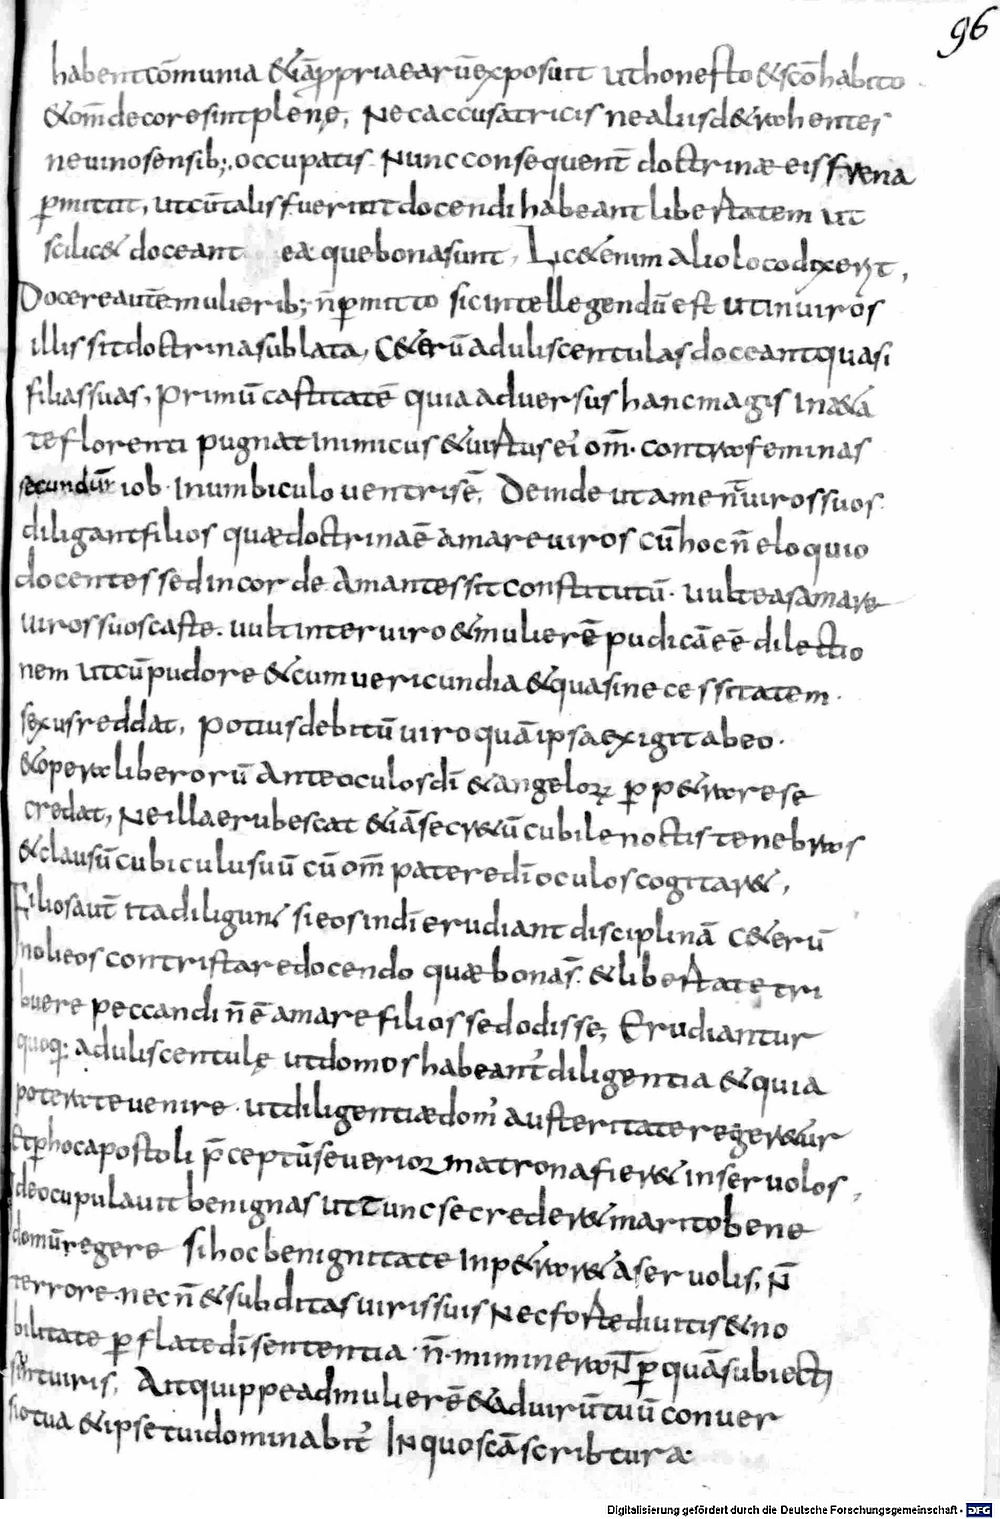 96
habent cōmunia &iāpropria earū exposuit ut honesto & scō habito
& om̄ decore sint plenę, Nec accusatricis ne aliis d&rahentes
ne uino sensib; occupatis. Nunc consequent̄ doctrinæ eis frena
ꝑmittit, ut cū talis fuerint docendi habeant libertatem ut
scilic& doceant ea que bona sunt, Lic& enim alio loco dixerit,
Docere autē mulierib; n̄ ꝑmitto sic intellegendū est ut in uiros
illis sit doctrina sublata, C&erū aduliscentulas doceant quasi
filias suas, Primū castitatē quia aduersus hanc magis in a&a
te florenti pugnat inimicus & uirtus ei' om̄. contra feminas
secundū iob. In umbiculo uentris ē, Deinde ut ament̄ uiros suos.
diligant filios quæ doctrina ē amare uiros cū hoc n̄ eloquio
docentes sed in corde amantes sit constitutū. uult eas amare
uiros suos caste. uult inter uiro & mulierē pudicā eē dilectio
nem ut cū pudore & cum uericundia & quasi necessitatem.
sexus reddat, potius debitū uiro quā ipsa exigit ab eo.
& opera liberorū ante oculos dī & angeloꝝ ꝑp&rare se
credat, Ne illa erubescat &iā secr&ū cubile noctis tenebras
& clausū cubiculu suū cū om̄ patere dī oculos cogitar&,
Filios aut̄ ita diligunt si eos in dī erudiant disciplinā C&erū
noli eos contristare docendo quæ bona s̄. & libertate tri
buere peccandi n̄ ē amare filios sed odisse, Erudiantur
quoq; aduliscentulę ut domos habeant diligentia & quia
poterat euenire. ut diligentiæ dom' austeritate reger&ur
Et ꝑ hoc apostoli p̄ceptū seuerior matrona fier& in seruolos,
ideo cupulauit benignas ut tunc se creder& marito bene
domū regere si hoc benignitate inp&rar& a seruolis, N̄
terrore. nec n̄ & subditas uiris suis Nec forte diuitis & no
bilitate ꝑflate dī sententia. n̄. mimineran̄t ꝑ quā subiectę
sint uiris, Ait quippe ad mulierē & ad uirū tuū conuer
sio tua & ipse tui dominabit' In quos cā scribtura.
Digitalisierung gefördert durch die Deutsche Forschungsgemeinschaft - DFG